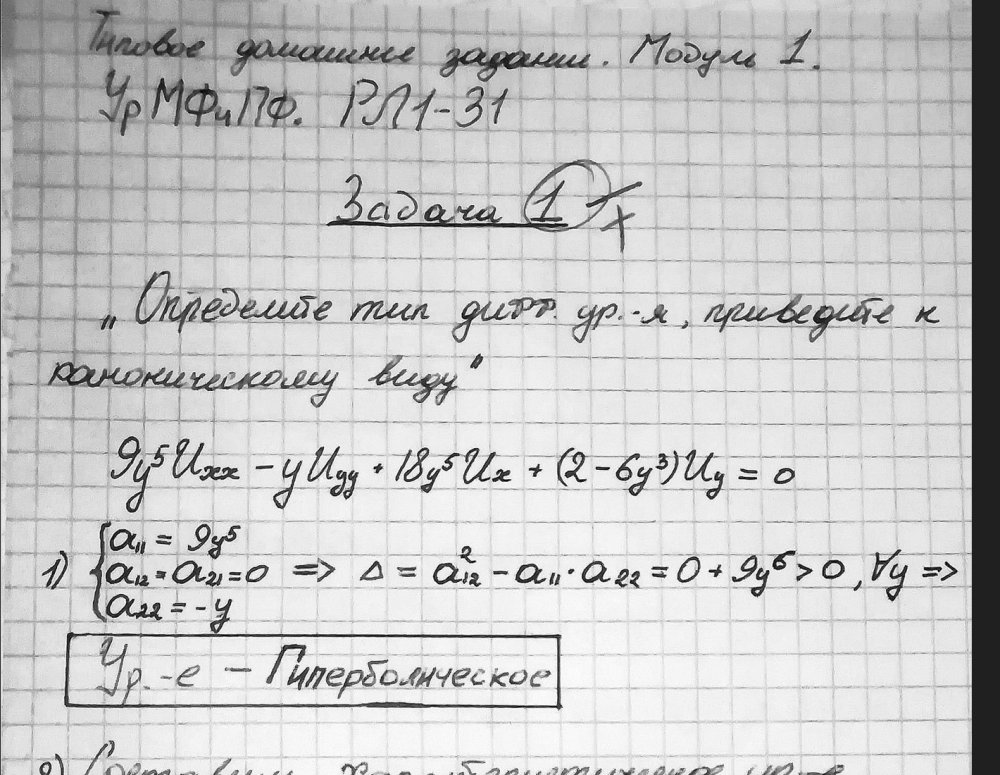 Типовое домашнее задание. Модуль 1.
Ур МФиПФ. РЛ1-31
Задача 1
„Определите тип дифф. ур.-я, приведите к
каноническому виду"
9y⁵Uₓₓ - yU_yy + 18y⁵Uₓ + (2 - 6y³)U_y = 0
1) { a₁₁ = 9y⁵
a₁₂ = a₂₁ = 0 => Δ = a₁₂² - a₁₁·a₂₂ = 0 + 9y⁶ > 0, ∀y =>
a₂₂ = -y
Ур.-е — Гиперболическое